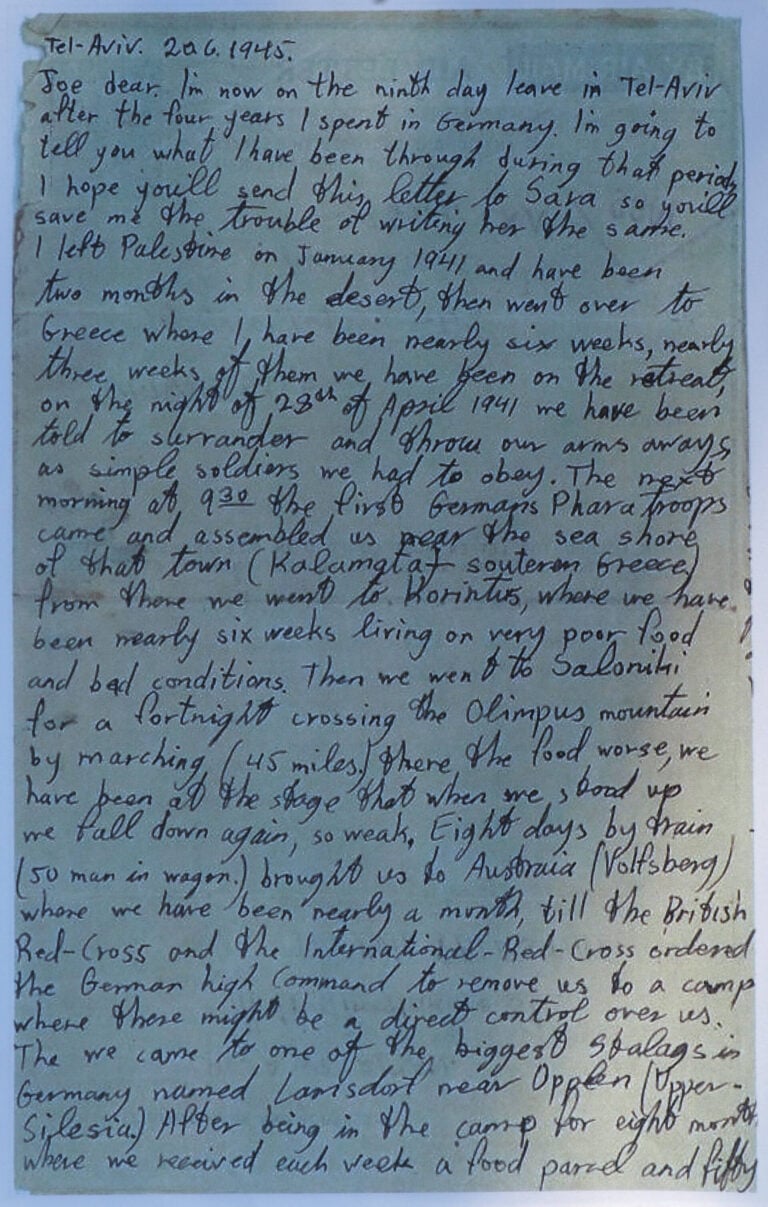 Tel-Aviv. 20.6.1945.
Joe dear. I'm now on the ninth day leave in Tel-Aviv
after the four years I spent in Germany. I'm going to
tell you what I have been through during that period,
I hope you'll send this letter to Sara so you'll
save me the trouble of writing her the same.
I left Palestine on January 1941 and have been
two months in the desert, then went over to
Greece where I have been nearly six weeks, nearly
three weeks of them we have been on the retreat,
on the night of 28th of April 1941 we have been
told to surrander and throw our arms aways
as simple soldiers we had to obey. The next
morning at 9 30 the first Germans Phara troops
came and assembled us near the sea shore
of that town (Kalamata souteren Greece)
from there we went to Korintus, where we have
been nearly six weeks living on very poor food
and bad conditions. Then we went to Saloniki
for a fortnight crossing the Olimpus mountain
by marching (45 miles.) there the food worse, we
have been at the stage that when we stood up
we fall down again, so weak. Eight days by train
(50 man in wagon.) brought us to Austraia (Volfsberg)
where we have been nearly a month, till the British
Red-Cross and the International-Red-Cross ordered
the German high Command to remove us to a camp
where there might be a direct control over us.
The we came to one of the biggest Stalags in
Germany named Lamsdorf near Opplen (Upper-
Silesia.) After being in the camp for eight month
where we received each week a food parcel and fifty